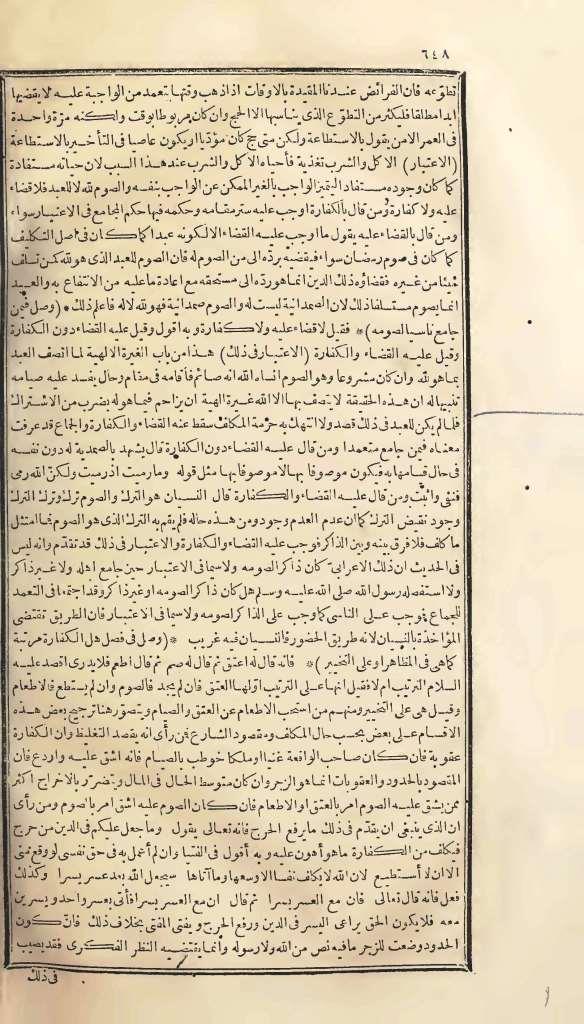 ٦٤٨
تطوعه فان الفرائض عندنا المقيدة بالاوقات اذا ذهب وقتها بتعمد من الواجبة عليه لا يقضيها
ابدا مطلقا فليكثر من التطوع الذي يناسبها الا الحج وان كان مربوطا بوقت ولكنه مرة واحدة
فى العمر الا من يقول بالاستطاعة ولكن متى حج كان مؤديا ويكون عاصيا فى التأخير بالاستطاعة
(الاعتبار) الاكل والشرب تغذية فأحياه الاكل والشرب عند هذا السبب لان حياته مستفادة
كما كان وجوده مستفادا ليتميز الواجب بالغير الممكن عن الواجب بنفسه والصوم لله لا للعبد فلا قضاء
عليه ولا كفارة ومن قال بالكفارة أوجب عليه ستر مقامه وحكمه فيها حكم المجامع فى الاعتبار سواء
ومن قال بالقضاء عليه يقول ما اوجب عليه القضاء الا لكونه عبدا كما كان فى اصل التكليف
كما كان فى صوم رمضان سواء فيقضيه برده الى من الصوم له فان الصوم للعبد الذى هو لله كمن تسلف
شيئا من غيره فقضاؤه ذلك الدين انما هو رده الى مستحقه مع اعادة ما عليه من الانتفاع به والعبد
انما يصوم مستسلفا ذلك لان الصمدانية ليست له والصوم صمدانية فهو لله لا له فاعلم ذلك *(وصل فيمن
جامع ناسيا لصومه)* فقيل لا قضاء عليه ولا كفارة وبه اقول وقيل عليه القضاء دون الكفارة
وقيل عليه القضاء والكفارة (الاعتبار فى ذلك) هذا من باب الغيرة الالهية لما اتصف العبد
بما هو لله وان كان مشروعا وهو الصوم انساه الله انه صائم فأقامه فى مقام وحال يفسد عليه صيامه
تنبيها له ان هذه الحقيقة لا يتصف بها الا الله غيرة الهية ان يزاحم فيما هو له بضرب من الاشتراك
فلما لم يكن للعبد فى ذلك قصد ولا انتهك به حرمة المكلف سقط عنه القضاء والكفارة والجماع قد عرفت
معناه فيمن جامع متعمدا ومن قال عليه القضاء دون الكفارة قال يشهد بالصمدية له دون نفسه
فى حال قيامها به فيكون موصوفا بها لا موصوفا بها مثل قوله وما رميت اذ رميت ولكن الله رمى
فنفى واثبت ومن قال عليه القضاء والكفارة قال النسيان هو الترك والصوم ترك وترك الترك
وجود نقيض الترك كما ان عدم العدم وجود ومن هذه حاله فلم يقم به الترك الذى هو الصوم فما امتثل
ما كلف فلا فرق بينه وبين الذاكر فوجب عليه القضاء والكفارة والاعتبار فى ذلك قد تقدم وانه ليس
فى الحديث ان ذلك الاعرابى كان ذاكرا لصومه ولا سيما فى الاعتبار حين جامع اهله ولا غير ذاكر
ولا استفصله رسول الله صلى الله عليه وسلم هل كان ذاكرا لصومه او غير ذاكر وقد اجتمعا فى التعمد
للجماع فوجب على الناسى كما وجب على الذاكر لصومه ولا سيما فى الاعتبار فان الطريق تقتضى
المؤاخذة بالنسيان لانه طريق الحضور فالنسيان فيه غريب *(وصل فى فصل هل الكفارة مرتبة
كما هى فى المظاهر او على التخيير)* فانه قال له اعتق ثم قال له صم ثم قال اطعم فلا يدرى اقصد عليه
السلام الترتيب ام لا فقيل انها على الترتيب اولها العتق فان لم يجد فالصوم وان لم يستطع فالاطعام
وقيل هى على التخيير ومنهم من استحب الاطعام عن العتق والصيام ويتصور هنا ترجيح بعض هذه
الاقسام على بعض بحسب حال المكلف ومقصود الشارع فمن رأى انه يقصد التغليظ وان الكفارة
عقوبة فان كان صاحب الواقعة غنيا او ملكا خوطب بالصيام فانه اشق عليه واردع فان
المقصود بالحدود والعقوبات انما هو الزجر وان كان متوسط الحال فى المال ويتضرر بالاخراج اكثر
ممن يشق عليه الصوم امر بالعتق او الاطعام فان كان الصوم عليه اشق امر بالصوم ومن رأى
ان الذى ينبغى ان يقدم فى ذلك ما يرفع الحرج فانه تعالى يقول وما جعل عليكم فى الدين من حرج
فيكلف من الكفارة ما هو أهون عليه وبه أقول فى الفتيا وان لم أعمل به فى حق نفسى لو وقع منى
الا ان لا أستطيع لان الله لا يكلف نفسا الا وسعها وما آتاها سيجعل الله بعد عسر يسرا وكذلك
فعل فانه قال تعالى فان مع العسر يسرا ثم قال ان مع العسر يسرا فأتى بعسر واحد ويسرين
معه فلا يكون الحق يراعى اليسر فى الدين ورفع الحرج ويفتى المفتى بخلاف ذلك فان كون
الحدود وضعت للزجر ما فيه نص من الله ولا رسوله وانما يقتضيه النظر الفكرى فقد يصيب
فى ذلك